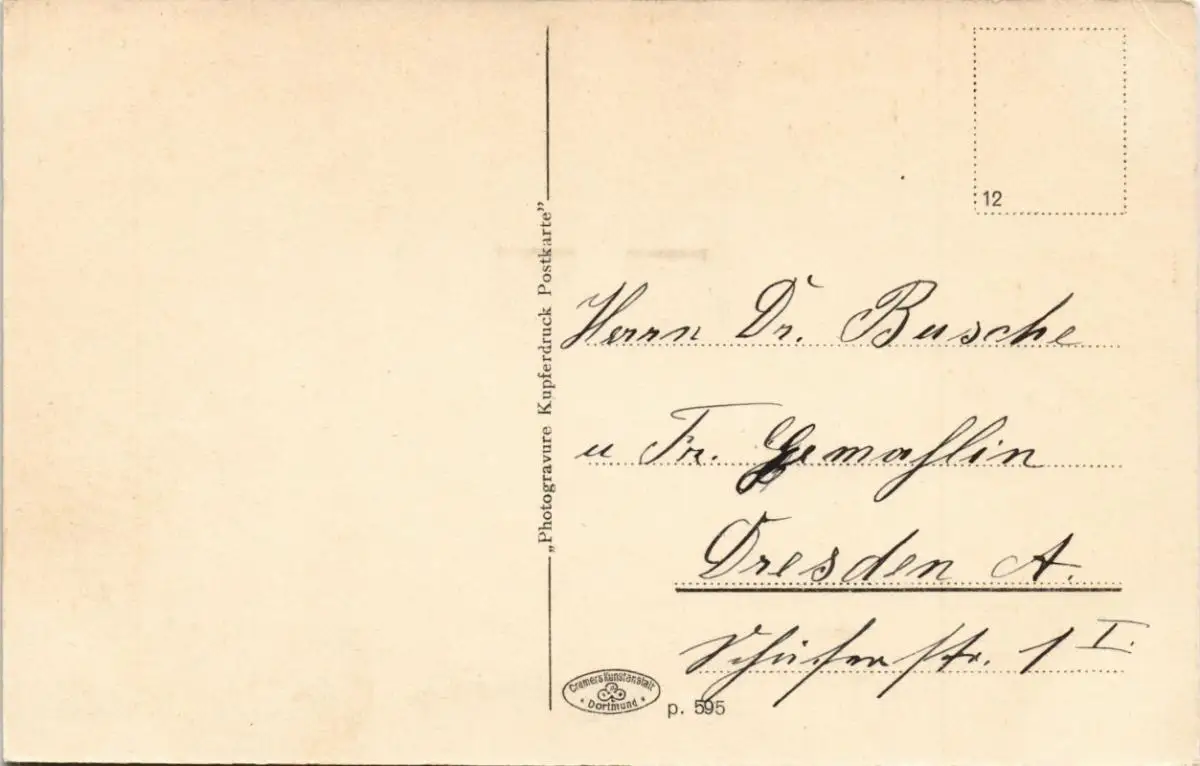 12
„Photogravure Kupferdruck Postkarte”
Herrn Dr. Busche
u Fr. Gemahlin
Dresden A.
str. 1 I.
Cramers Kunstanstalt
Dortmund
p. 595